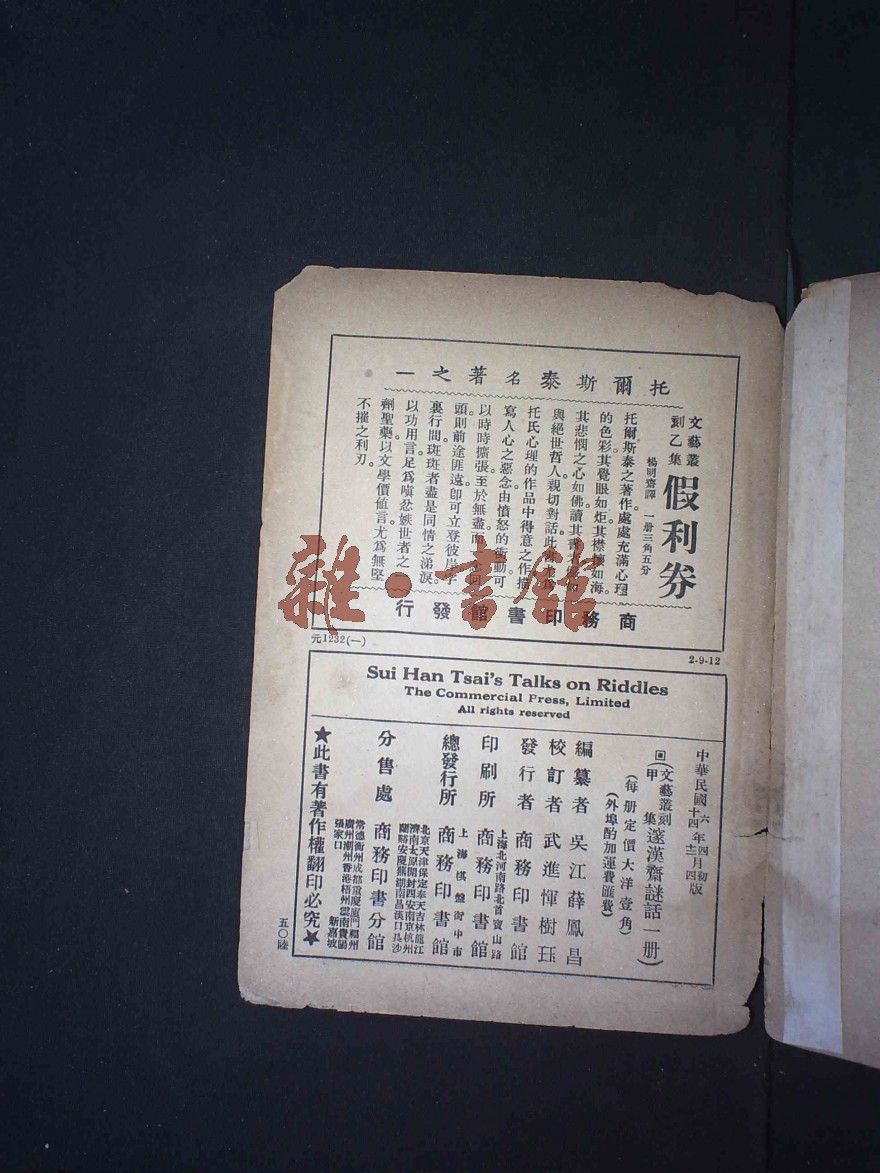 托爾斯泰名著之一
文藝叢刻乙集
假利券
楊明齋譯 一册三角五分
托爾斯泰之著作處處充滿心理
的色彩其覺眼如炬其襟懷如海。
其悲憫之心如佛讀其書
與絕世哲人親切對話此
托氏心理的作品中得意之作描
寫人心之惡念由憤怒的衝動可
以時時擴張至於無盡而
頭則前途匪遠卽可立登彼岸字
裏行間斑斑者盡是同情之涕淚。
以功用言足爲嗔忿嫉世者之一
劑聖藥以文學價値言尤爲無堅
不摧之利刃。
商務印書館發行
元1232(一)
2-9-12
Sui Han Tsai's Talks on Riddles
The Commercial Press, Limited
All rights reserved
中華民國六年四月初版
十四年十二月四版
(文藝叢刻甲集邃漢齋謎話一册)
(每册定價大洋壹角)
(外埠酌加運費匯費)
編纂者 吳江薛鳳昌
校訂者 武進惲樹珏
發行者 商務印書館
印刷所 上海北河南路北首寶山路 商務印書館
總發行所 上海棋盤街中市 商務印書館
分售處 商務印書分館
北京天津保定奉天吉林龍江
濟南太原開封西安南京杭州
蘭谿安慶蕪湖南昌漢口長沙
常德衡州成都重慶廈門福州
廣州潮州香港梧州雲南貴陽
張家口 新嘉坡
★此書有著作權翻印必究★
五〇陸
雜·書館